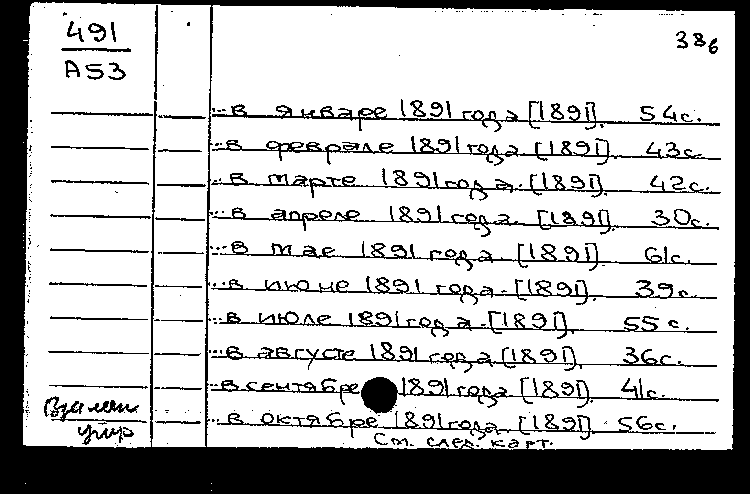 491
А53
38б
...в январе 1891 года [1891]. 54с.
...в феврале 1891 года [1891]. 43с.
...в марте 1891 года. [1891]. 42с.
...в апреле 1891 года. [1891]. 30с.
...в мае 1891 года. [1891] 61с.
...в июне 1891 года. [1891]. 39с.
...в июле 1891 года. [1891]. 55с.
...в августе 1891 года [1891]. 36с.
...в сентябре 1891 года [1891]. 41с.
...в октябре 1891 года. [1891]. 56с.
См. след. карт.